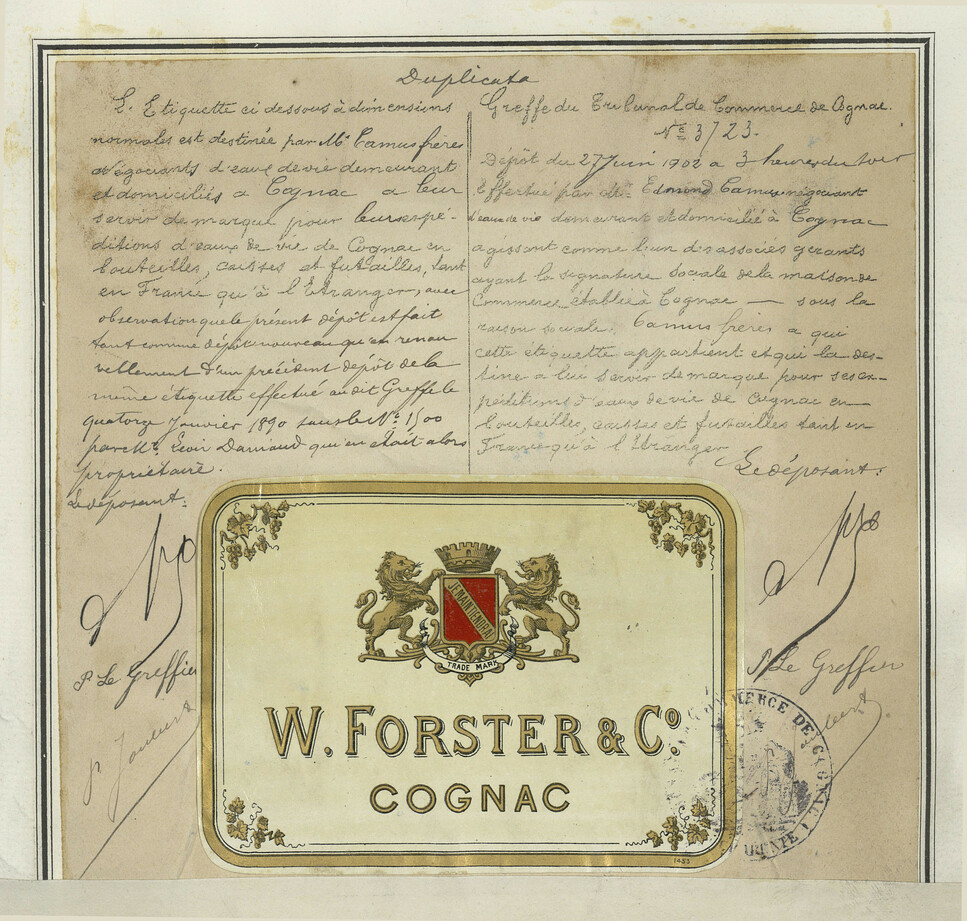 Duplicata
L'Etiquette ci dessous à dimensions
normales est destinée par Mrs Camus frères
négociants d'eaux de vie demeurant
et domiciliés à Cognac à leur
servir de marque pour leurs expé-
ditions d'eaux de vie de Cognac en
bouteilles, caisses et futailles, tant
en France qu'à l'Etranger, avec
observation que le présent dépôt est fait
tant comme dépôt nouveau qu'en renou
vellement d'un précédent dépôt de la
même étiquette effectué au dit Greffe le
quatorze Janvier 1890 sous le No 1500
par Mr. Damiaud qui en était alors
propriétaire.
Le déposant:
P. Le Greffier
Greffe du Tribunal de Commerce de Cognac.
No 3723.
Dépôt du 27 Juin 1902 à 3 heures du soir
Effectué par Mr. Edmond Camus négociant
d'eaux de vie demeurant et domicilié à Cognac
agissant comme l'un des associés gérants
ayant la signature sociale de la maison de
Commerce établie à Cognac — sous la
raison sociale: Camus frères à qui
cette étiquette appartient et qui la des-
tine à lui servir de marque pour ses ex-
péditions d'eaux de vie de Cognac en
bouteilles, caisses et futailles tant en
France qu'à l'Etranger
Le déposant:
P. Le Greffier
JE MAINTIENDRAI
TRADE MARK
W. FORSTER & Co.
COGNAC
1453
COMMERCE DE COGNAC